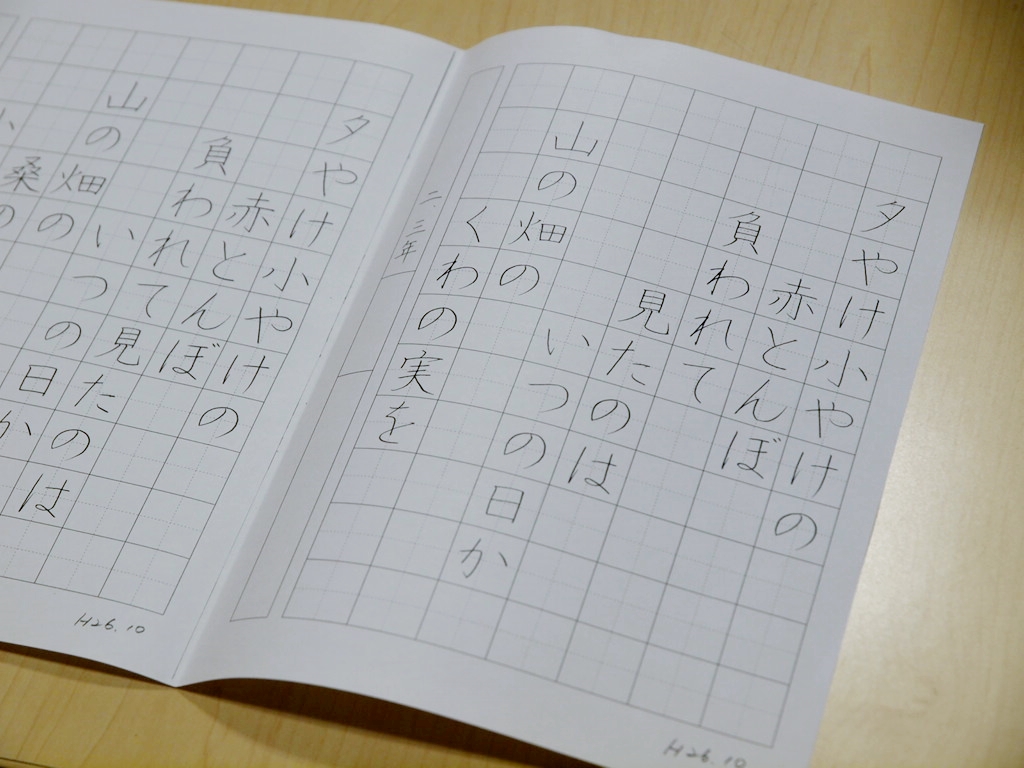 夕やけ小やけの
赤とんぼ
負われて
見たのは
いつの日か
山の畑の
くわの実を
二・三年
H26.10
夕やけ小やけの
赤とんぼ
負われて見たのは
いつの日か
山の畑の
桑の
H26.10